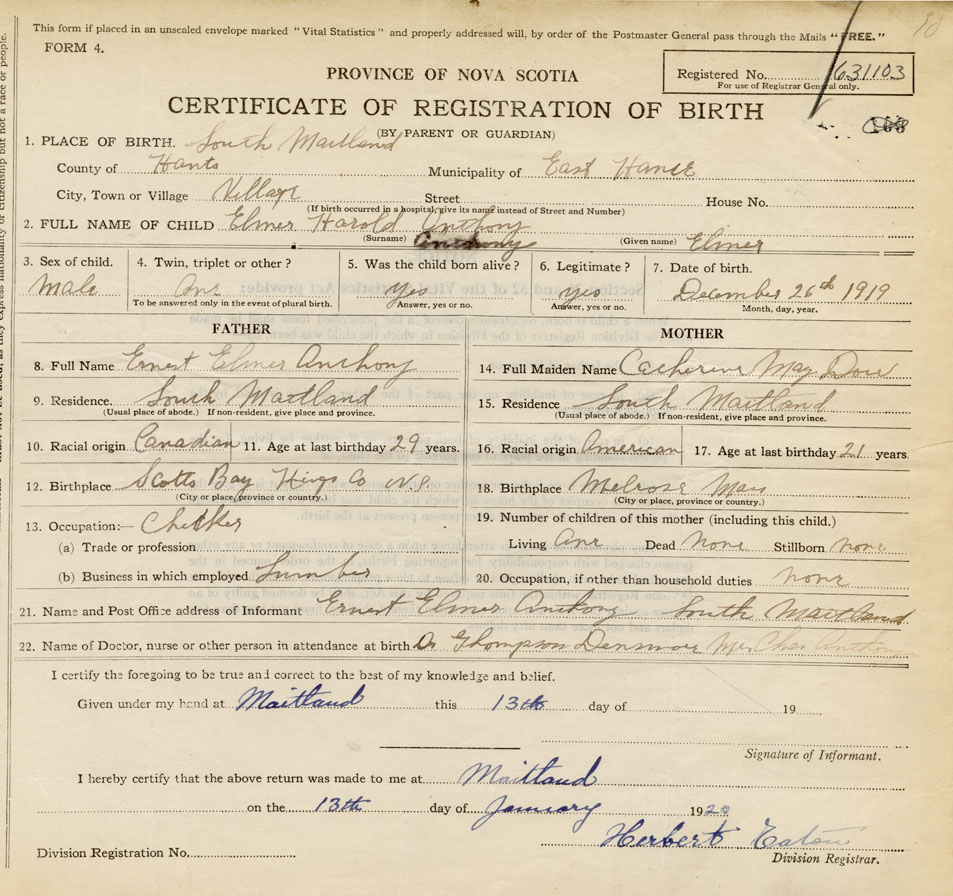 This form if placed in an unsealed envelope marked "Vital Statistics" and properly addressed will, by order of the Postmaster General pass through the Mails "FREE."
FORM 4.
Registered No. 631103
For use of Registrar General only.
PROVINCE OF NOVA SCOTIA
CERTIFICATE OF REGISTRATION OF BIRTH
(BY PARENT OR GUARDIAN)
1. PLACE OF BIRTH. South Maitland
County of Hants Municipality of East Hants
City, Town or Village Village Street House No.
(If birth occurred in a hospital, give its name instead of Street and Number)
2. FULL NAME OF CHILD Elmer Harold Anthony
(Surname) Anthony (Given name) Elmer
3. Sex of child. 4. Twin, triplet or other? 5. Was the child born alive? 6. Legitimate? 7. Date of birth.
Male One yes yes December 26th 1919
To be answered only in the event of plural birth. Answer, yes or no. Answer, yes or no. Month, day, year.
FATHER
8. Full Name Ernest Elmer Anthony
9. Residence. South Maitland
(Usual place of abode.) If non-resident, give place and province.
10. Racial origin Canadian 11. Age at last birthday 29 years.
12. Birthplace Scotts Bay Kings Co N.S.
(City or place, province or country.)
13. Occupation:— Checker
(a) Trade or profession
(b) Business in which employed Lumber
MOTHER
14. Full Maiden Name Catherine May
15. Residence South Maitland
(Usual place of abode.) If non-resident, give place and province.
16. Racial origin American 17. Age at last birthday 21 years.
18. Birthplace Melrose Mass
(City or place, province or country.)
19. Number of children of this mother (including this child.)
Living One Dead None Stillborn none
20. Occupation, if other than household duties none
21. Name and Post Office address of Informant Ernest Elmer Anthony South Maitland
22. Name of Doctor, nurse or other person in attendance at birth Dr Thompson Densmore Mrs Chas Anthony
I certify the foregoing to be true and correct to the best of my knowledge and belief.
Given under my hand at Maitland this 13th day of 19
Signature of Informant.
I hereby certify that the above return was made to me at Maitland
on the 13th day of January 1920
Herbert Eaton
Division Registration No. Division Registrar.